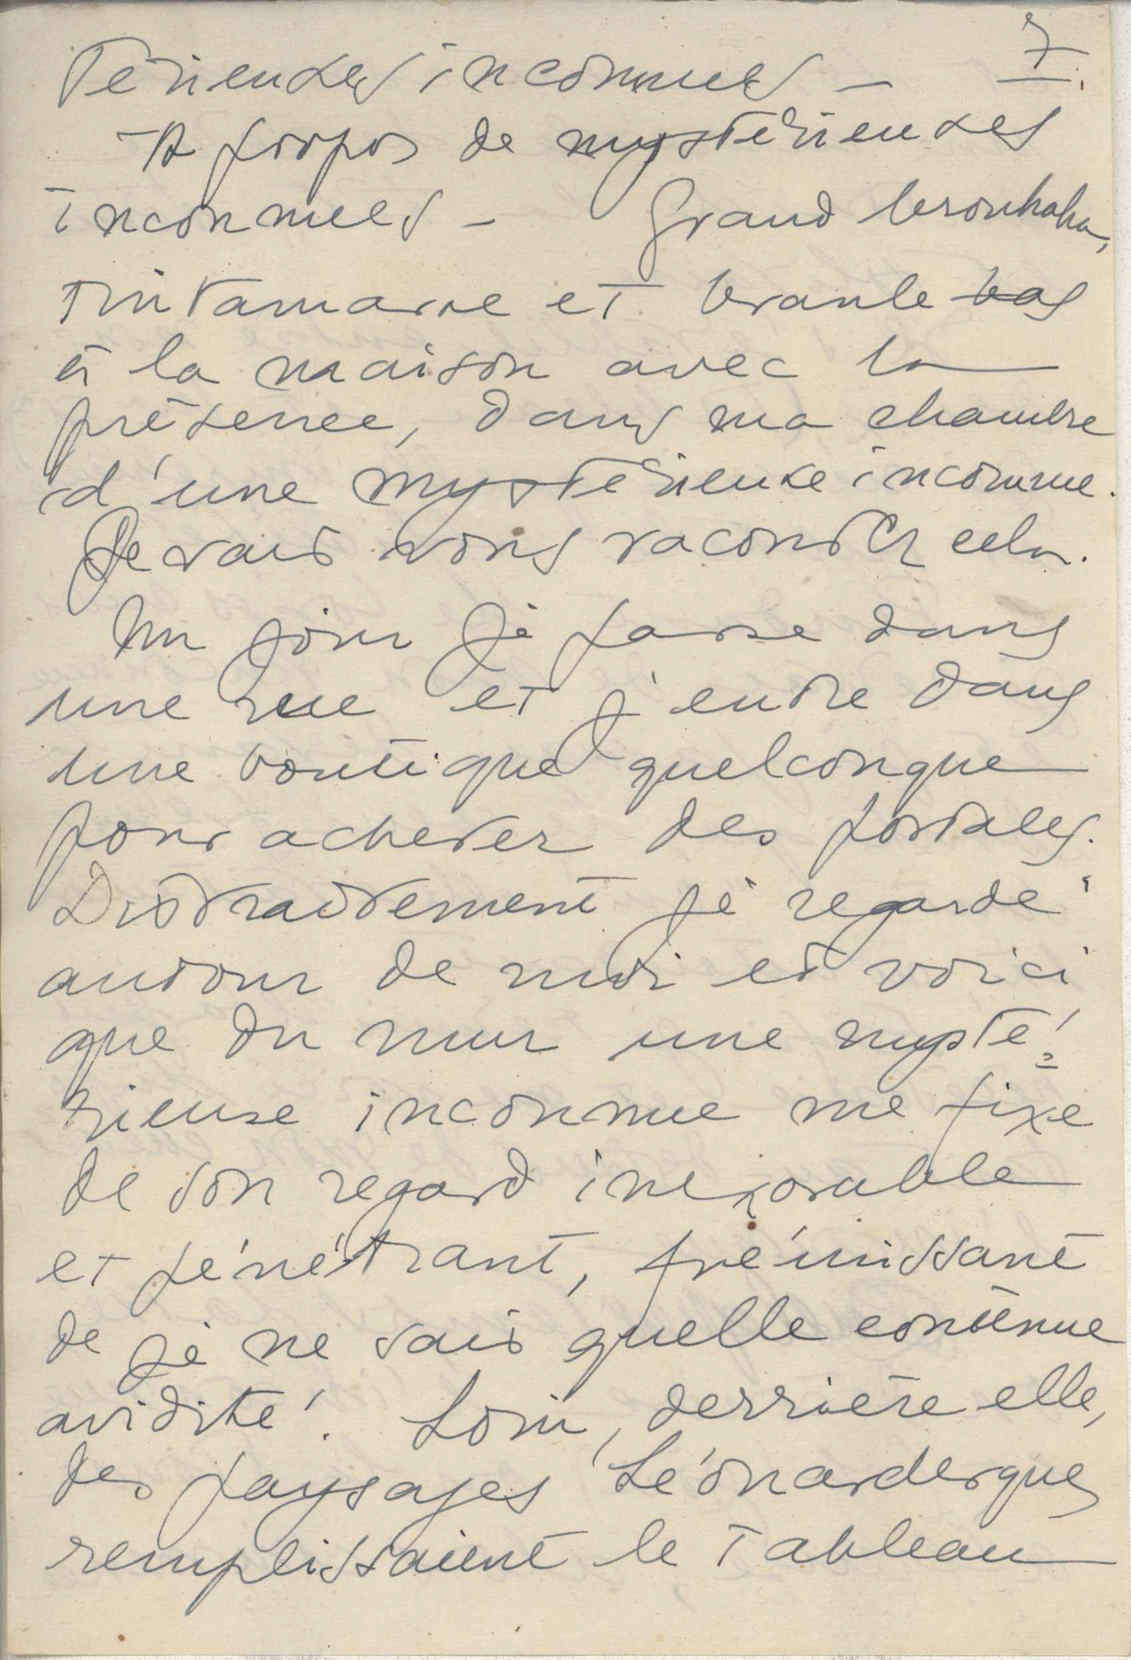 7.
térieuses inconnues –
– A propos de mystérieuses
inconnues – Grand brouhaha,
tintamarre et branle bas
à la maison avec la
présence, dans ma chambre
d'une mystérieuse inconnue.
Je vais vous raconter cela.
Un jour je passe dans
une rue et j'entre dans
une boutique quelconque
pour acheter des postales.
Distraitement je regarde
autour de moi et voici
que du mur une mysté=
rieuse inconnue me fixe
de son regard inexorable
et pénétrant, frémissant
de je ne sais quelle contenue
avidité! Loin, derrière elle,
des paysages Léonardesques
remplissaient le tableau